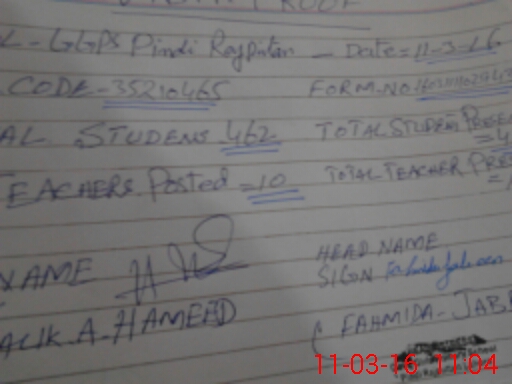 PROOF
L-GGPS Pindi Rajputan - Date = 11-3-16
CODE - 35210465 FORM-NO
AL STUDENS 462 TOTAL STUDENT PRESE
= 4
TEACHERS Posted = 10 TOTAL TEACHER PRE
NAME HEAD NAME
SIGN
ALIK.A-HAMEED ( FAHMIDA-JAB
11-03-16 11:04